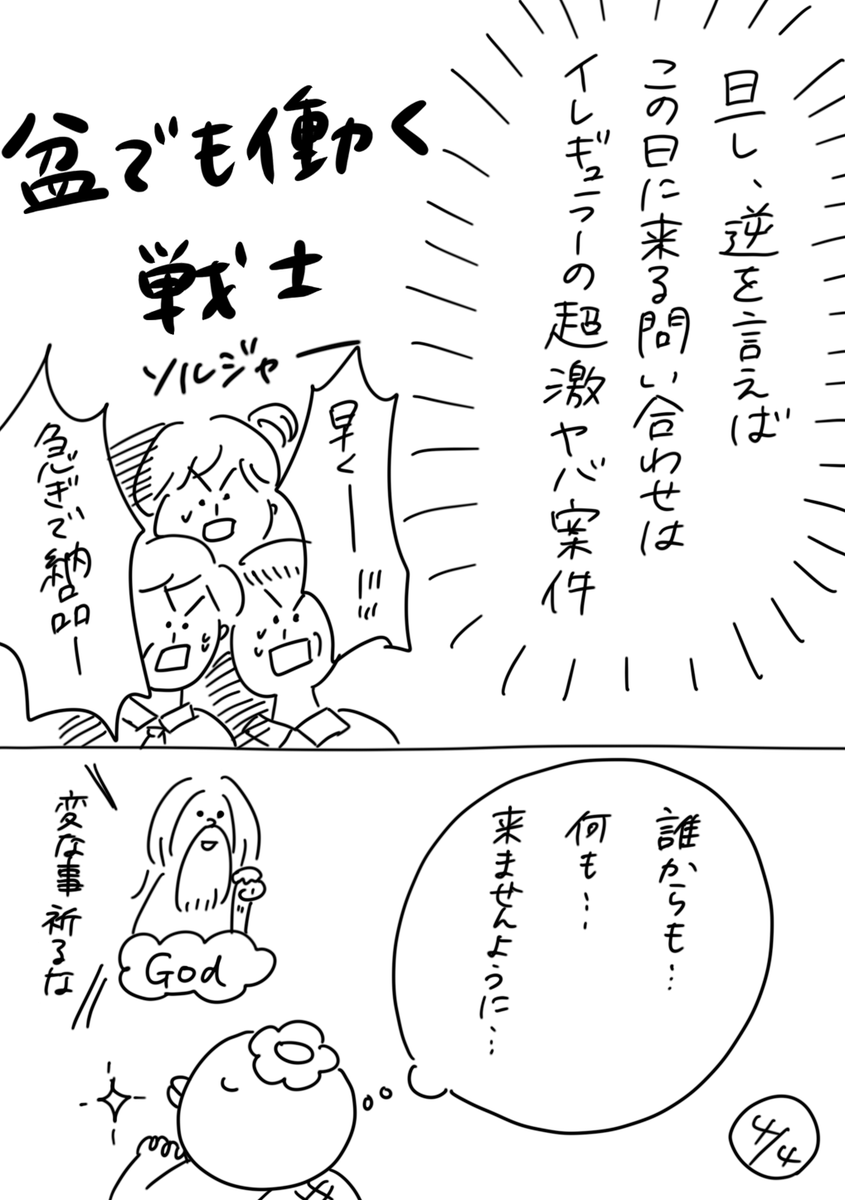 旦し、逆を言えば
この日に来る問い合わせは
イレギュラーの超激ヤバ案件
盆でも働く
戦士
ソルジャー
早くー!!!
急ぎで納品ー
誰からも…
何も…
来ませんように…
God
変な事祈るな
4/4